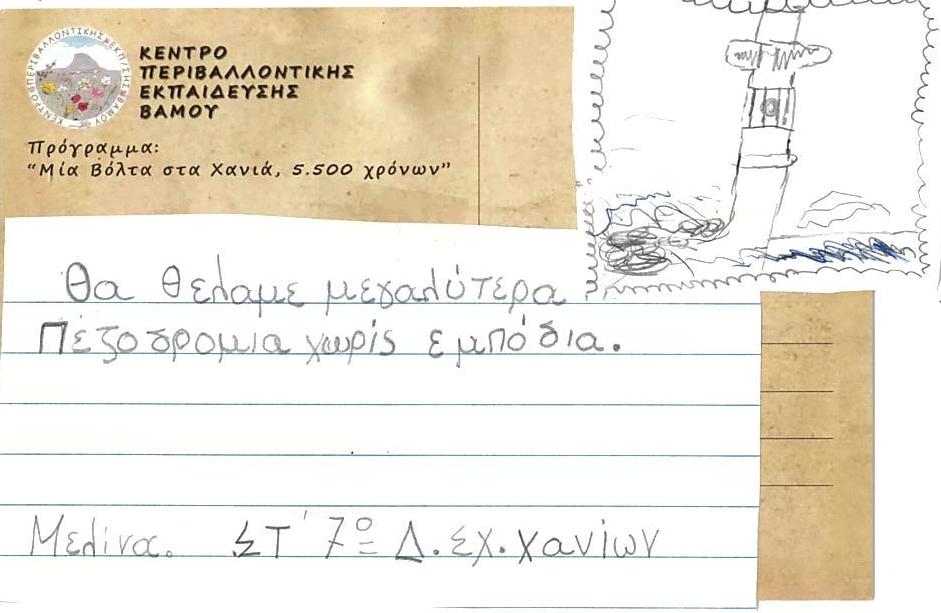 ΚΕΝΤΡΟ ΠΕΡΙΒΑΛΛΟΝΤΙΚΗΣ ΕΚΠ/ΣΗΣ ΒΑΜΟΥ
ΚΕΝΤΡΟ
ΠΕΡΙΒΑΛΛΟΝΤΙΚΗΣ
ΕΚΠΑΙΔΕΥΣΗΣ
ΒΑΜΟΥ
Πρόγραμμα:
“Μία Βόλτα στα Χανιά, 5.500 χρόνων”
Θα θελαμε μεγαλύτερα
Πεζοδρομια χωρίς εμπόδια.
Μελίνα. ΣΤ΄ 7ο Δ. Σχ. Χανίων